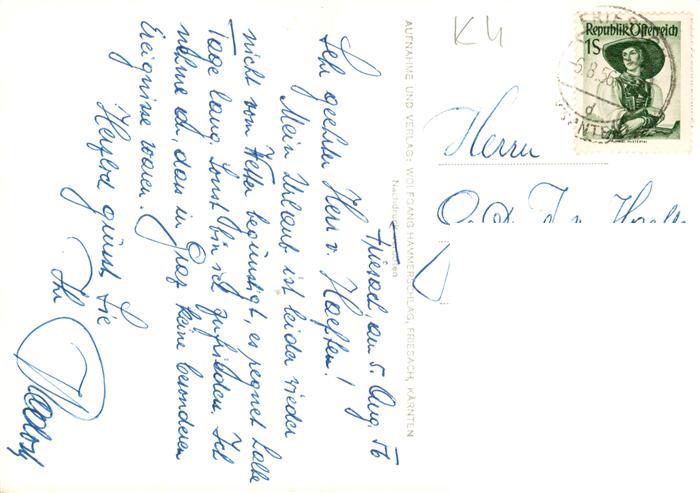 Friesach, am 5. Aug. 56
Sehr geehrter Herr v. Haeften!
Mein Urlaub ist leider wieder
nicht vom Wetter begünstigt, es regnet halbe
Tage lang. Sonst bin ich zufrieden. Ich
nehme an, dass in Graz keine besonderen
Ereignisse waren.
Herzlich grüsst Sie
Ihr
AUFNAHME UND VERLAG: WOLFGANG HAMMERSCHLAG, FRIESACH, KÄRNTEN
K4
Republik Österreich
1S
-6.8.56
d
Herrn